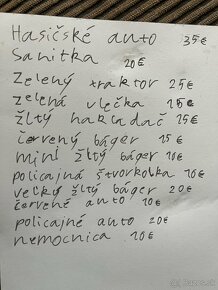 Hasičské auto 35€
Sanitka 20€
Zelený traktor 25€
zelená vlečka 15€
žltý nakladač 15€
červený báger 15€
mini žltý báger 10€
policajná štvorkolka 10€
veľký žltý báger 20€
červené auto 10€
policajné auto 20€
nemocnica 10€